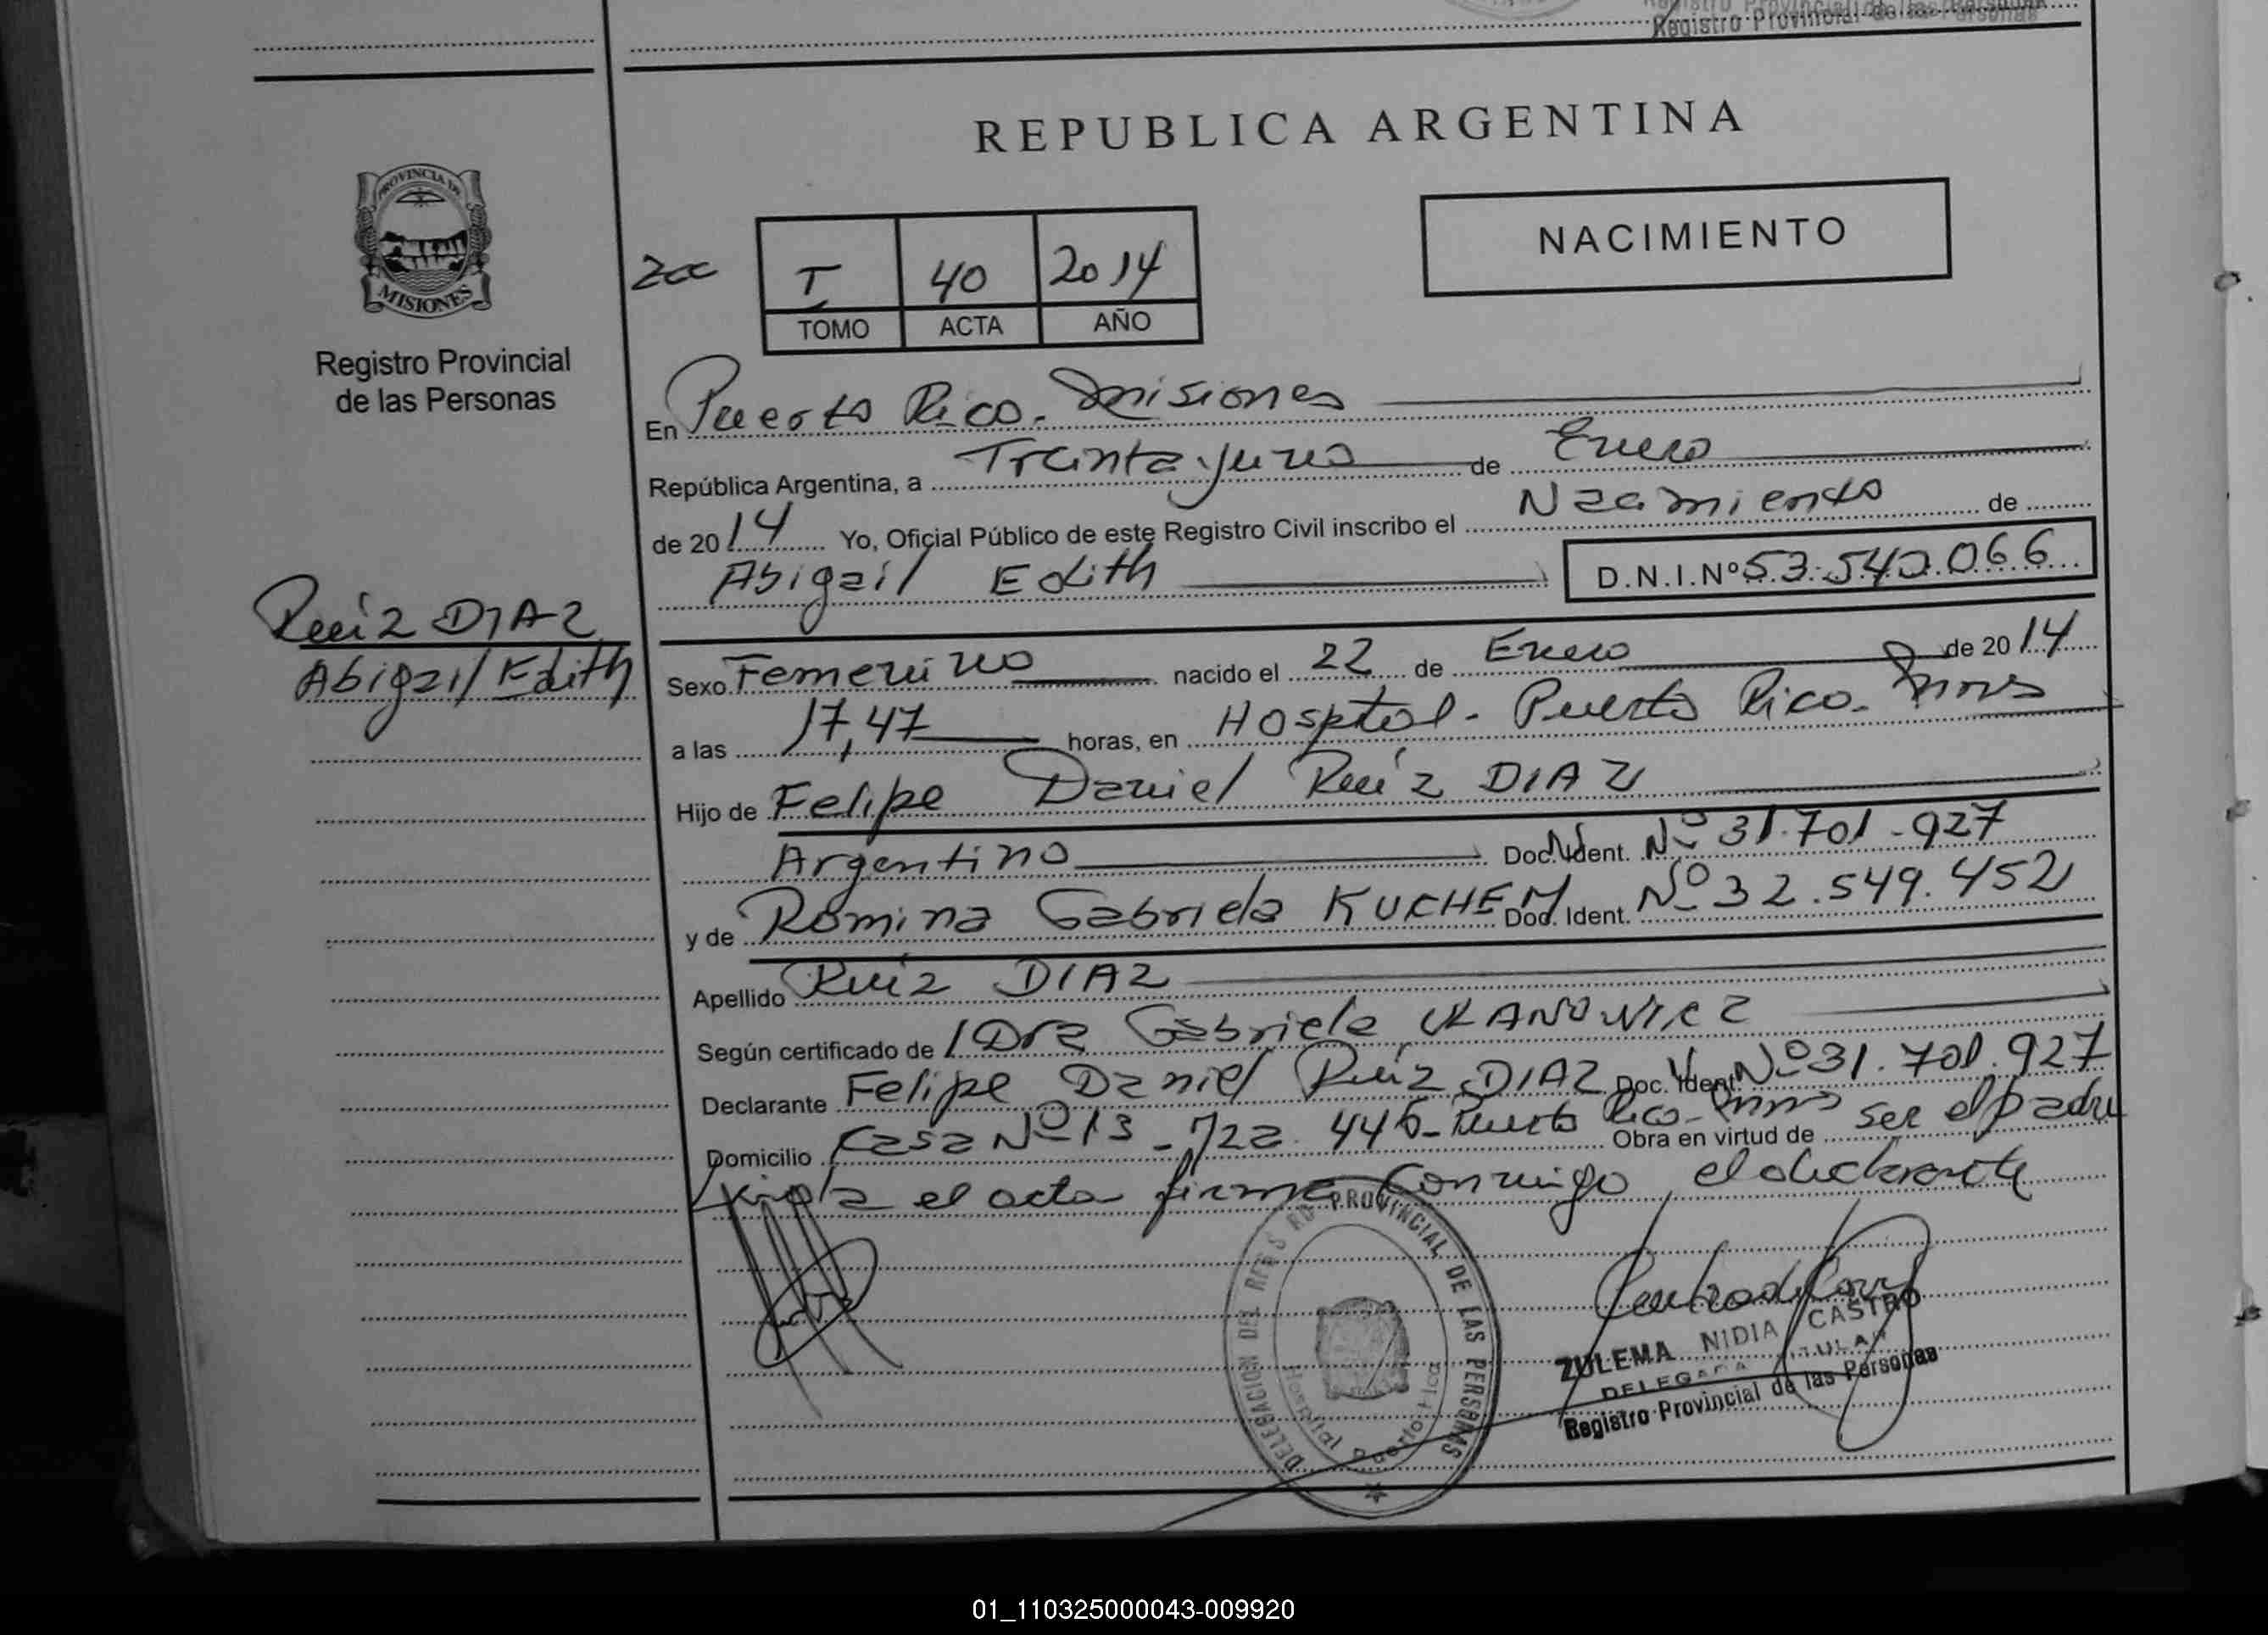 Registro Provincial de las Personas
REPUBLICA ARGENTINA
PROVINCIA DE
MISIONES
Registro Provincial
de las Personas
NACIMIENTO
I 40 2014
TOMO ACTA AÑO
En Puerto Rico. Misiones
República Argentina, a Treinta y uno de Enero
de 2014 Yo, Oficial Público de este Registro Civil inscribo el Nacimiento de
Abigail Edith D.N.I.Nº 53.540.066
Ruíz DIAZ
Abigail Edith
Sexo Femenino nacido el 22 de Enero de 2014
a las 17,47 horas, en Hosptal - Puerto Rico. Mnes
Hijo de Felipe Daniel Ruíz DIAZ
Argentino Doc. Ident. Nº 31.701.927
y de Romina Gabriela KUCHEM Doc. Ident. Nº 32.549.452
Apellido Ruiz DIAZ
Según certificado de Dra Gabriela
Declarante Felipe Daniel Ruíz DIAZ Doc. Ident. Nº 31.701.927
Domicilio Casa Nº 13 - Puerto Rico - Mnes Obra en virtud de ser el padre
el acta firma conmigo, el declarante
DELEGACION DEL REGISTRO PROVINCIAL DE LAS PERSONAS
Hospital Puerto Rico
ZULEMA NIDIA CASTRO
DELEGADA TITULAR
Registro Provincial de las Personas
01_110325000043-009920